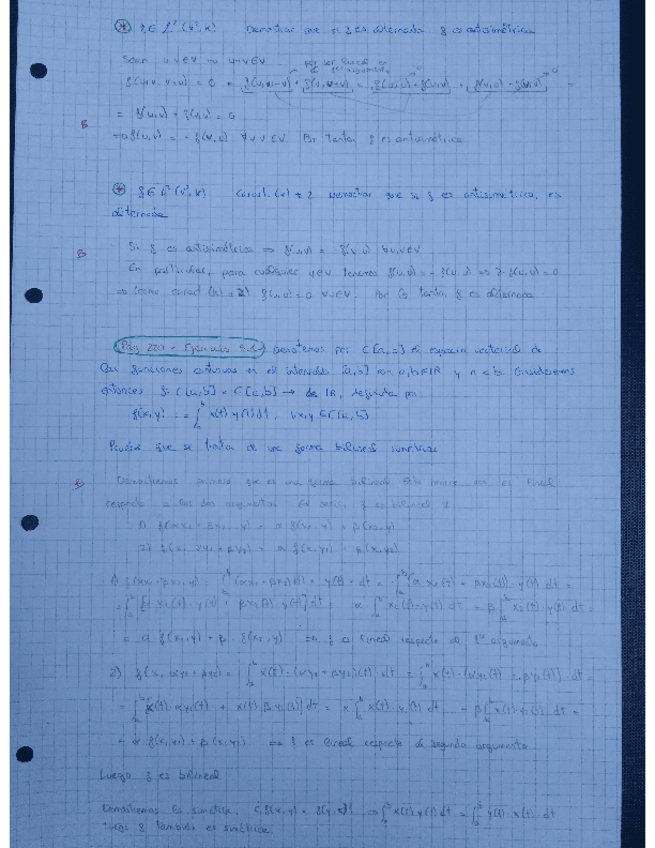 f ∈ L²(V², K) Demostrar que si f es alternada f es antisimétrica
Sean u, v ∈ V u+v ∈ V por ser lineal
f(u+v, u+v) = 0 =
= f(u,v) + f(v,u) = 0
f(u,v) = - f(v,u) ∀ u,v ∈ V. Por tanto f es antisimétrica
f ∈ L²(V², K) Caract. (K) ≠ 2 Demostrar que si f es antisimétrica, es
alternada
Si f es antisimétrica ⇒ f(u,v) = - f(v,u) ∀u,v∈V
En particular, para cualquier u∈V tenemos f(u,u) = - f(u,u) ⇒ 2·f(u,u) = 0
⇒ (como caract (K) ≠ 2) f(u,u) = 0 ∀u∈V. Por lo tanto f es alternada
Denotemos por C[a,b] el espacio vectorial de
las funciones continuas en el intervalo [a,b] con a,b∈ℝ y a<b. Consideremos
entonces f: C[a,b] × C[a,b] → ℝ, definida por
f(x,y) = ∫ₐᵇ x(t) y(t) dt, ∀x,y ∈ C[a,b]
Probar que se trata de una forma bilineal simétrica
Demostremos primero que es una forma bilineal
respecto a los dos argumentos. Es decir, f es bilineal si
1) f(αx₁ + βx₂, y) = α f(x₁,y) + β f(x₂,y)
2) f(x, αy₁ + βy₂) = α f(x,y₁) + β f(x,y₂)
1) f(αx₁ + βx₂, y) = ∫ₐᵇ (αx₁ + βx₂)(t) · y(t) · dt = ∫ₐᵇ (α x₁(t) + βx₂(t)) · y(t) dt =
= ∫ₐᵇ [α x₁(t) · y(t) + βx₂(t) y(t)] dt = α · ∫ₐᵇ x₁(t) · y(t) dt + β ∫ₐᵇ x₂(t) · y(t) dt =
= α f(x₁,y) + β · f(x₂,y) ⇒ f es lineal respecto del 1er argumento
2) f(x, αy₁ + βy₂) = ∫ₐᵇ x(t) · (αy₁ + βy₂)(t) · dt = ∫ₐᵇ x(t) · [αy₁(t) + βy₂(t)] dt =
= ∫ₐᵇ [x(t) · αy₁(t) + x(t) · β y₂(t)] dt = α ∫ₐᵇ x(t) · y₁(t) dt + β ∫ₐᵇ x(t) y₂(t) dt =
= α f(x,y₁) + β f(x,y₂) ⇒ f es lineal respecto al segundo argumento
Luego f es bilineal
Demostremos la simetría: ¿f(x,y) = f(y,x)? ⇒ ∫ₐᵇ x(t) y(t) dt = ∫ₐᵇ y(t) · x(t) · dt
luego f también es simétrica